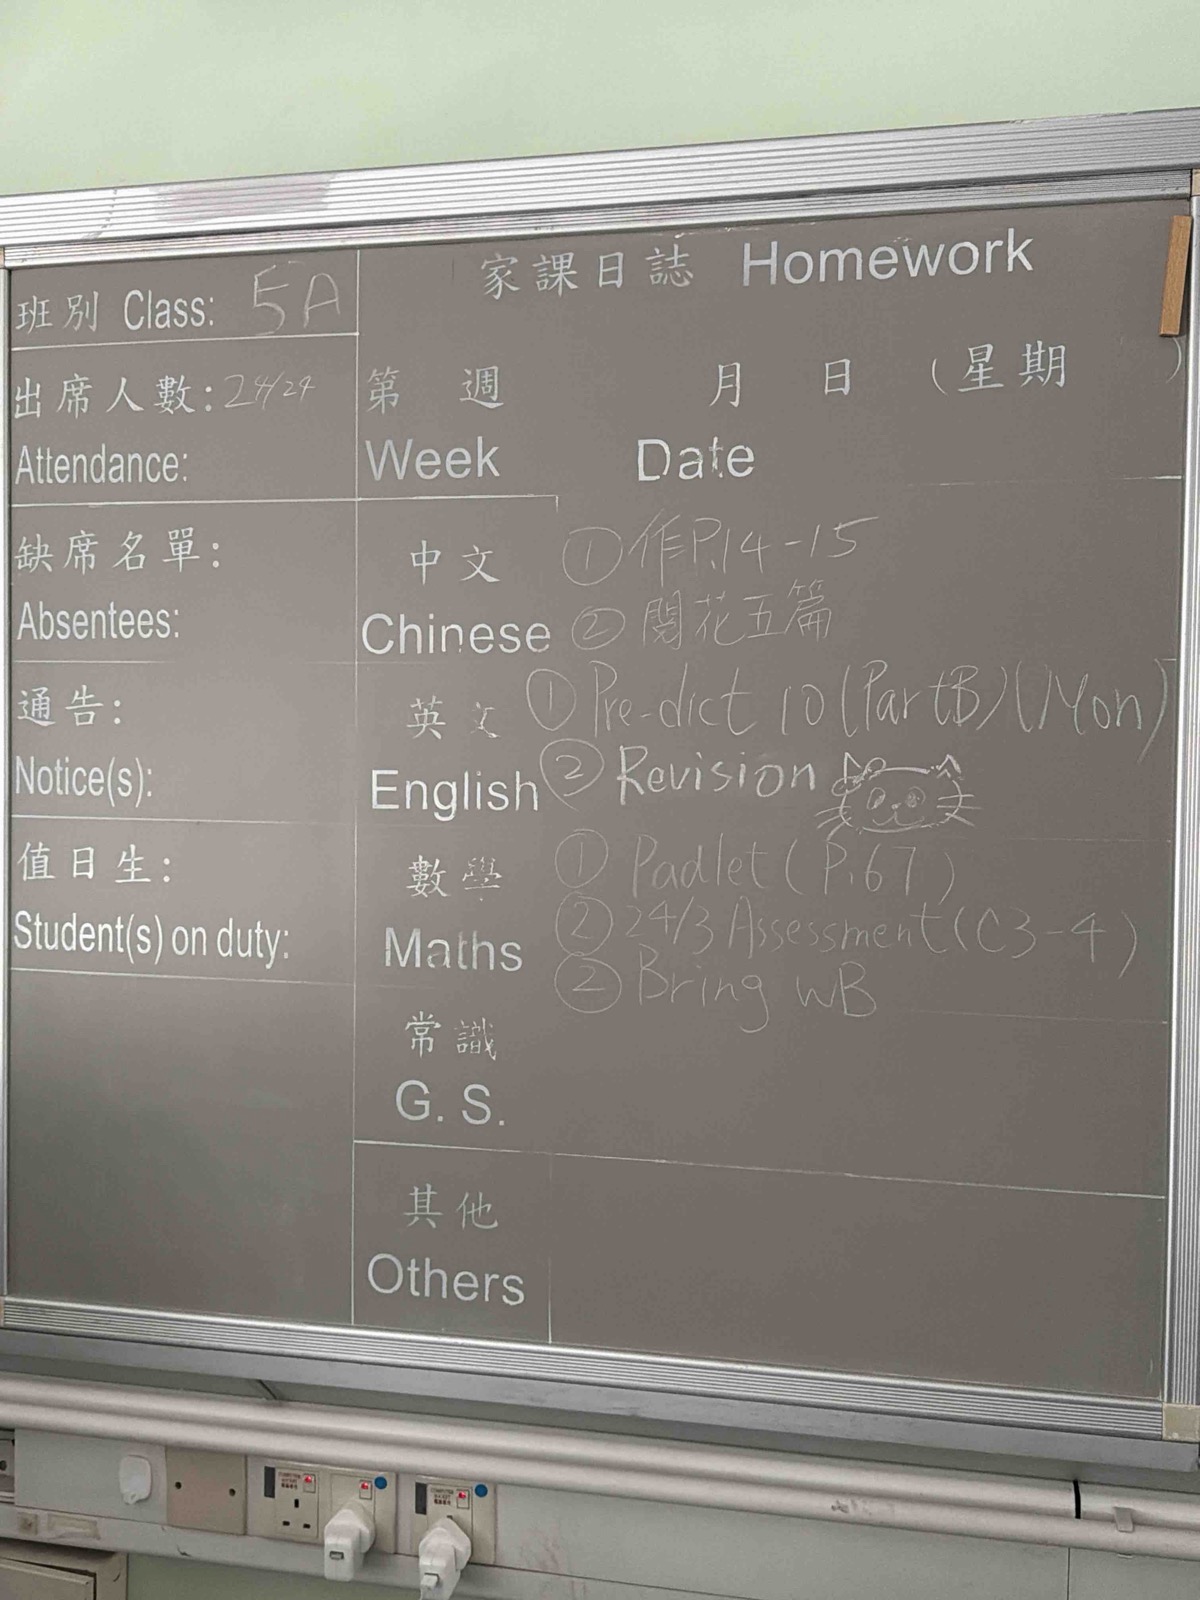 家課日誌 Homework
班別 Class: 5A
出席人數: 24/24
Attendance:
第 週 月 日 (星期 )
Week Date
缺席名單:
Absentees:
通告:
Notice(s):
值日生:
Student(s) on duty:
中文
Chinese
① 作P.14-15
② 閱花五篇
英文
English
① Pre-dict 10 (Part B) (Mon)
② Revision
數學
Maths
① Padlet (P.67)
② 24/3 Assessment (C3-4)
② Bring WB
常識
G. S.
其他
Others